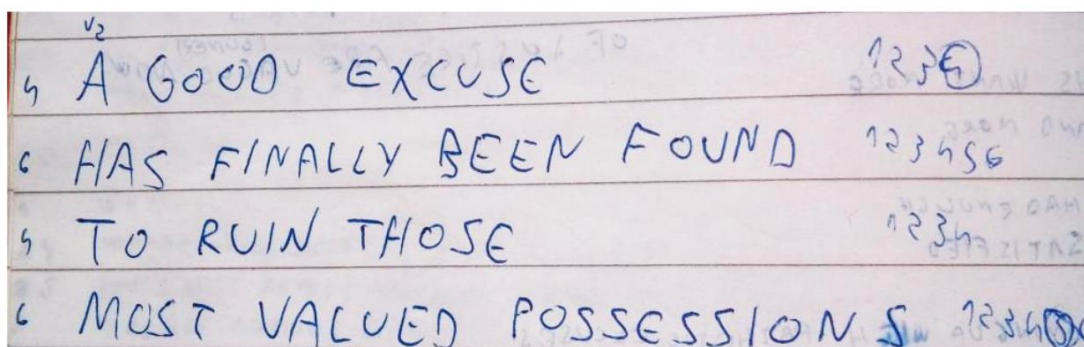 V2
4 A GOOD EXCUSE 1234
6 HAS FINALLY BEEN FOUND 123456
4 TO RUIN THOSE 1234
6 MOST VALUED POSSESSIONS 1234